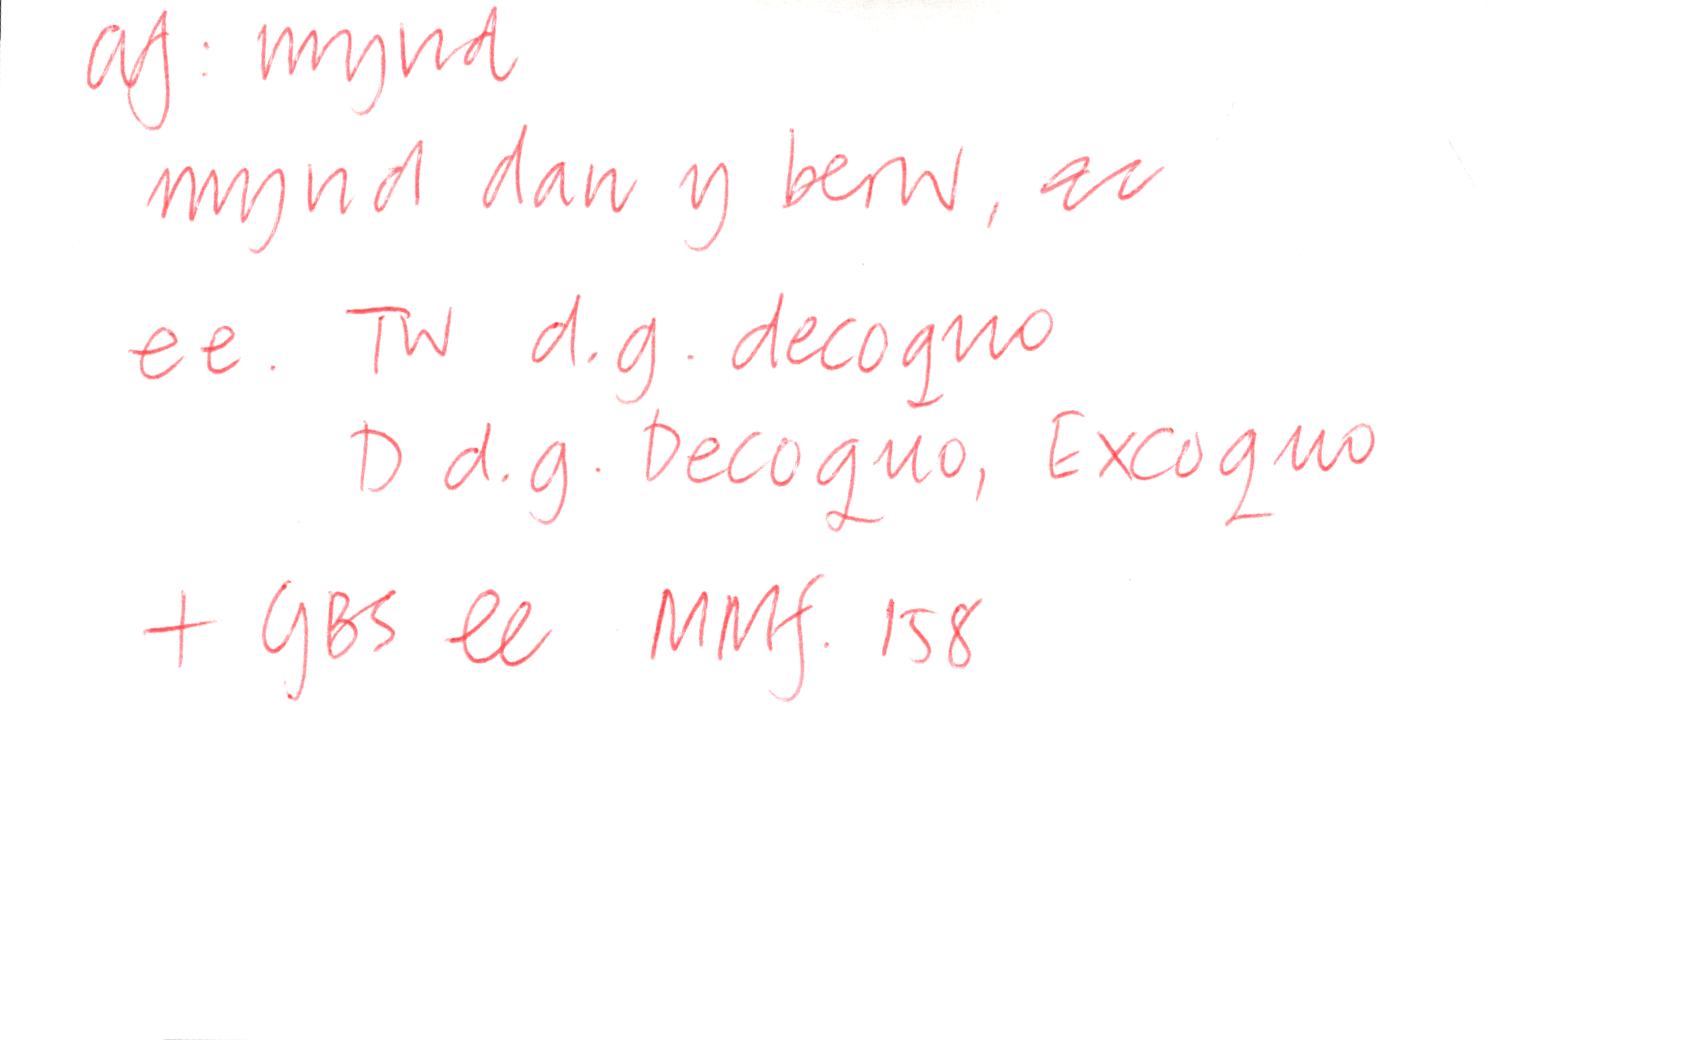 af: mynd
mynd dan y berw, ac
ee. TW d.g. decoquo
D d.g. Decoquo, Excoquo
+ GBS ee MMf. 158